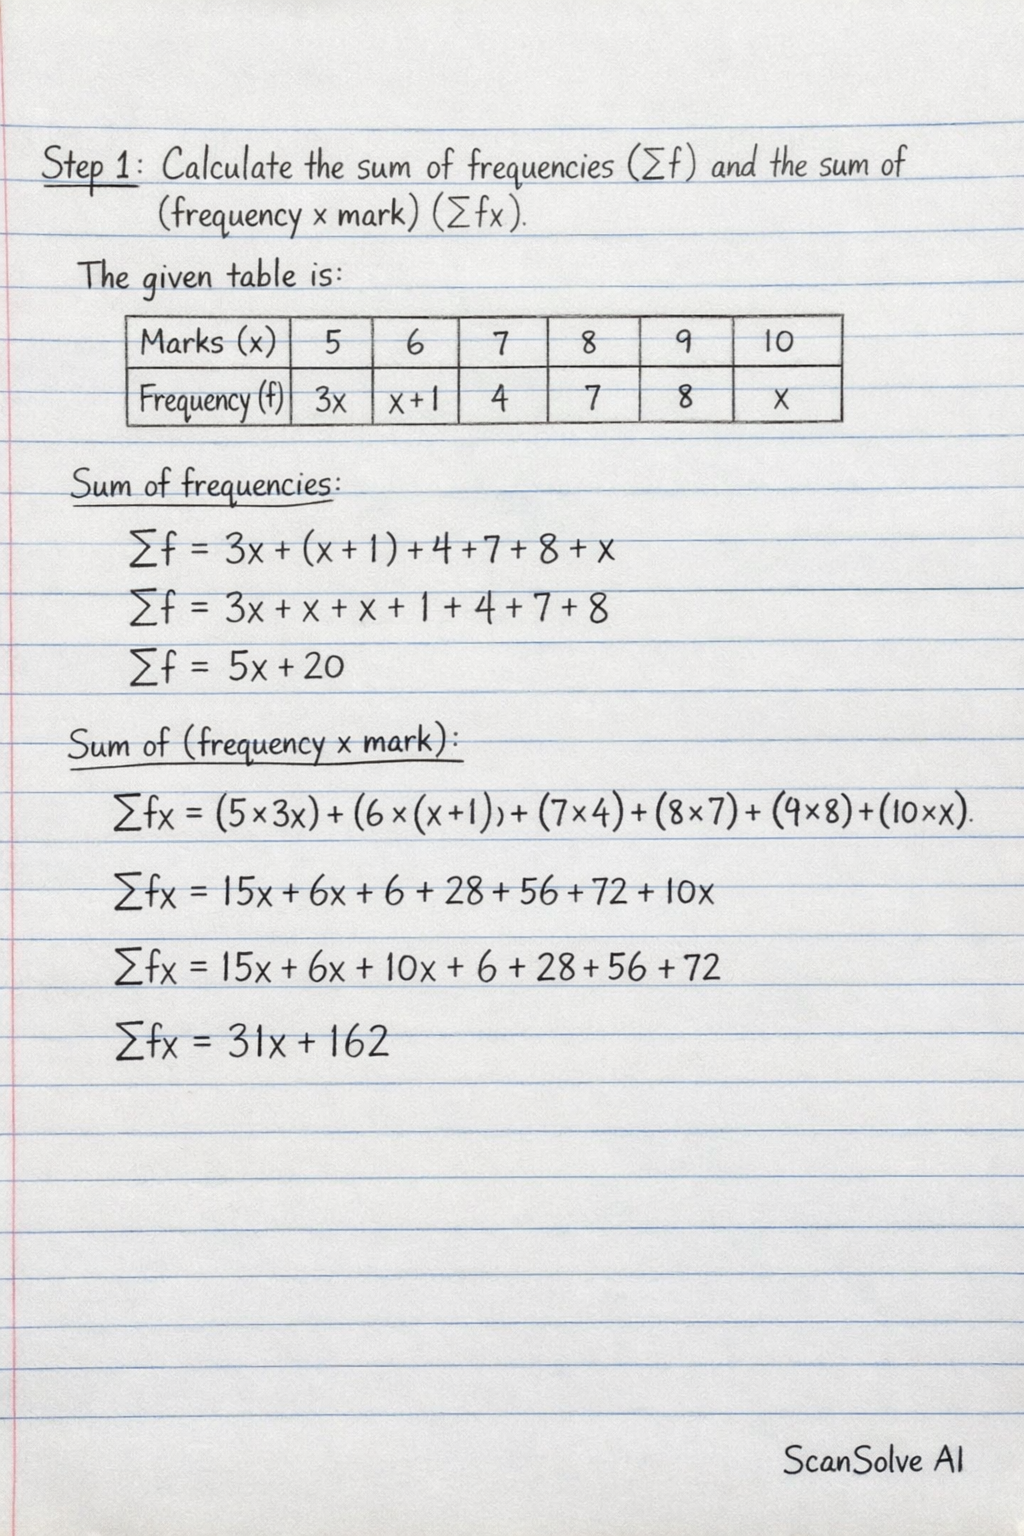 Step 1: Calculate the sum of frequencies (Σf) and the sum of
(frequency x mark) (Σfx).
The given table is:
Marks (x) 5 6 7 8 9 10
Frequency (f) 3x x+1 4 7 8 x
Sum of frequencies:
Σf = 3x + (x + 1) + 4 + 7 + 8 + x
Σf = 3x + x + x + 1 + 4 + 7 + 8
Σf = 5x + 20
Sum of (frequency x mark):
Σfx = (5×3x) + (6×(x+1)) + (7×4) + (8×7) + (9×8) + (10×x).
Σfx = 15x + 6x + 6 + 28 + 56 + 72 + 10x
Σfx = 15x + 6x + 10x + 6 + 28 + 56 + 72
Σfx = 31x + 162
ScanSolve AI